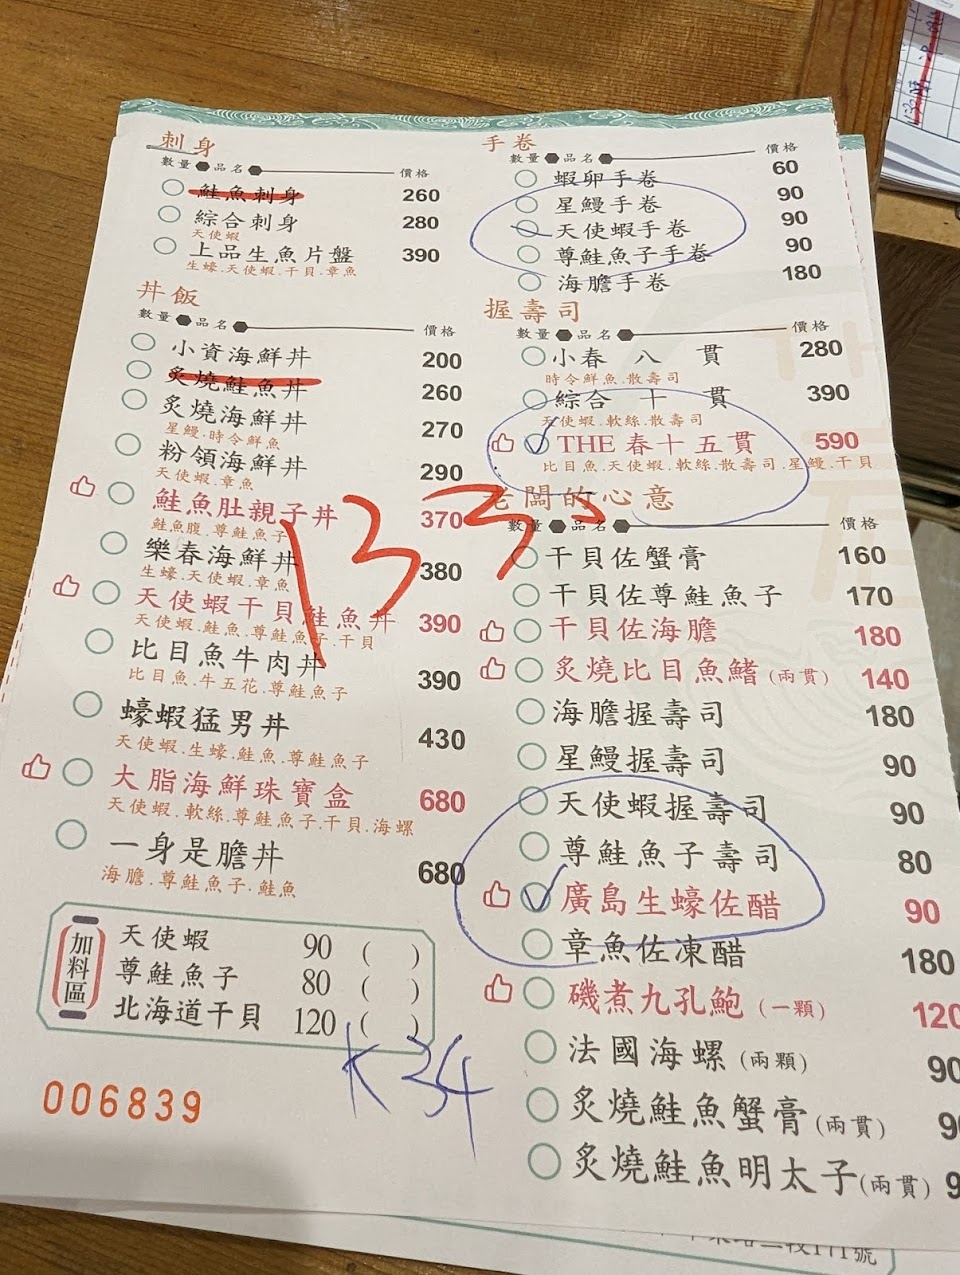 刺身
數量 品名 價格
鮭魚刺身 260
綜合刺身 280
天使蝦
上品生魚片盤 390
生蠔.天使蝦.干貝.章魚
丼飯
數量 品名 價格
小資海鮮丼 200
炙燒鮭魚丼 260
炙燒海鮮丼 270
星鰻.時令鮮魚
粉領海鮮丼 290
天使蝦.章魚
鮭魚肚親子丼 370
鮭魚腹.尊鮭魚子
樂春海鮮丼 380
生蠔.天使蝦.章魚
天使蝦干貝鮭魚丼 390
天使蝦.鮭魚.尊鮭魚子.干貝
比目魚牛肉丼 390
比目魚.牛五花.尊鮭魚子
蠔蝦猛男丼 430
天使蝦.生蠔.鮭魚.尊鮭魚子
大脂海鮮珠寶盒 680
天使蝦.軟絲.尊鮭魚子.干貝.海螺
一身是膽丼 680
海膽.尊鮭魚子.鮭魚
加料區
天使蝦 90 ( )
尊鮭魚子 80 ( )
北海道干貝 120 ( )
K34
006839
1330
手卷
數量 品名 價格
蝦卵手卷 60
星鰻手卷 90
天使蝦手卷 90
尊鮭魚子手卷 90
海膽手卷 180
握壽司
數量 品名 價格
小春八貫 280
時令鮮魚.散壽司
綜合十貫 390
天使蝦.軟絲.散壽司
THE春十五貫 590
比目魚.天使蝦.軟絲.散壽司.星鰻.干貝
老闆的心意
數量 品名 價格
干貝佐蟹膏 160
干貝佐尊鮭魚子 170
干貝佐海膽 180
炙燒比目魚鰭(兩貫) 140
海膽握壽司 180
星鰻握壽司 90
天使蝦握壽司 90
尊鮭魚子壽司 80
廣島生蠔佐醋 90
章魚佐凍醋 180
磯煮九孔鮑(一顆) 120
法國海螺(兩顆) 90
炙燒鮭魚蟹膏(兩貫) 9
炙燒鮭魚明太子(兩貫) 9
171號